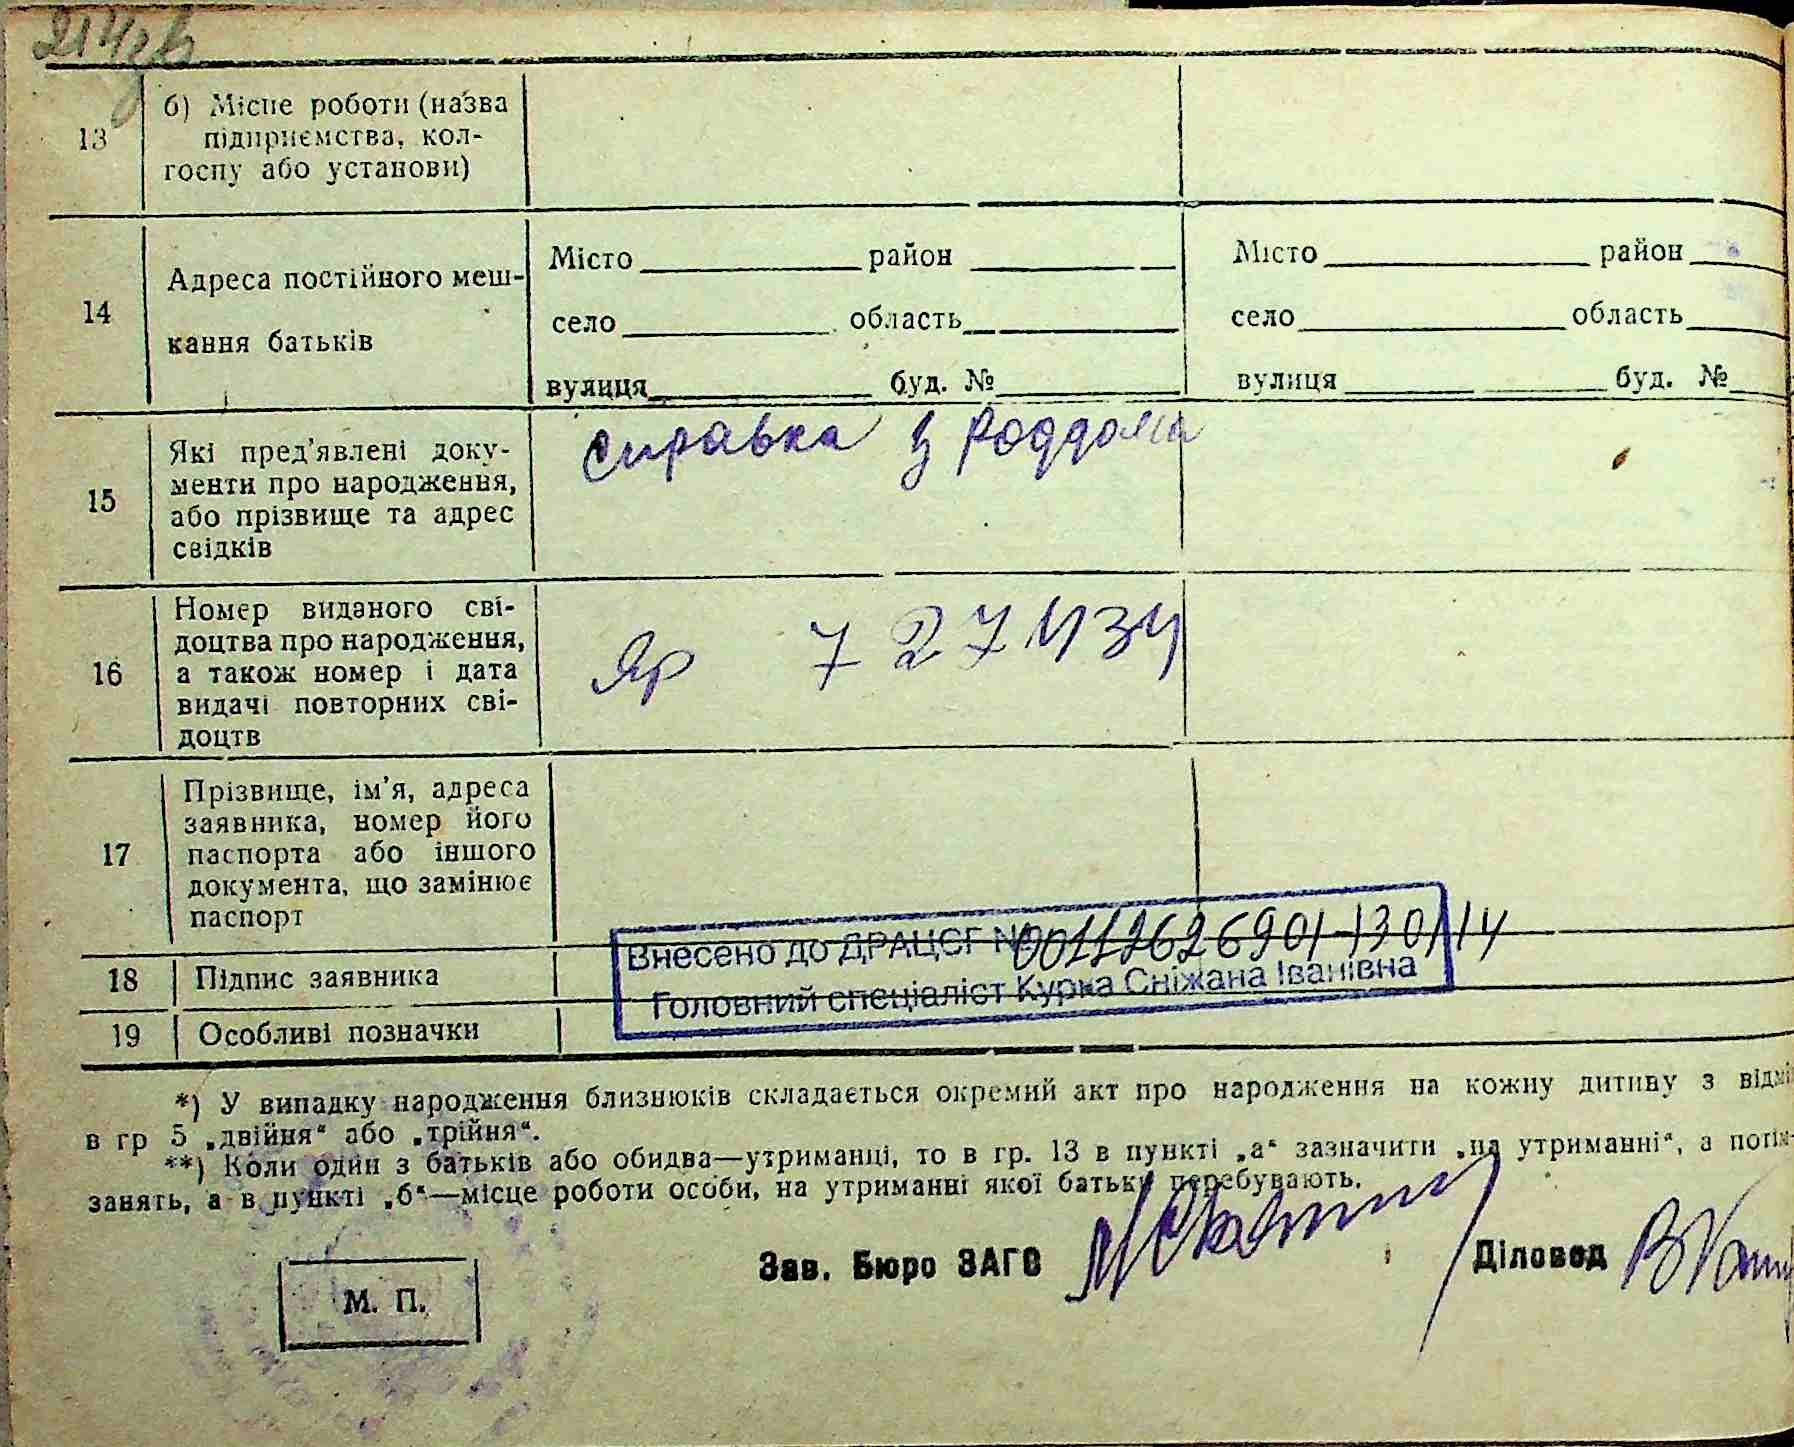 13
б) Місце роботи (назва
підприємства, кол-
госпу або установи)
14
Адреса постійного меш-
кання батьків
Місто район
село область
вулиця буд. №
Місто район
село область
вулиця буд. №
15
Які пред'явлені доку-
менти про народження,
або прізвище та адрес
свідків
справка з роддома
16
Номер виданого сві-
доцтва про народження,
а також номер і дата
видачі повторних сві-
доцтв
Яр 727434
17
Прізвище, ім'я, адреса
заявника, номер його
паспорта або іншого
документа, що замінює
паспорт
Внесено до ДРАЦСГ № 00112626901-130/14
Головний спеціаліст Курка Сніжана Іванівна
18 Підпис заявника
19 Особливі позначки
*) У випадку народження близнюків складається окремий акт про народження на кожну дитину з
в гр 5 „двійня“ або „трійня“.
**) Коли один з батьків або обидва—утриманці, то в гр. 13 в пункті „а“ зазначити „на утриманні“, а
занять, а в пункті „б“—місце роботи особи, на утриманні якої батьки перебувають.
Зав. Бюро ЗАГС Діловод
М. П.